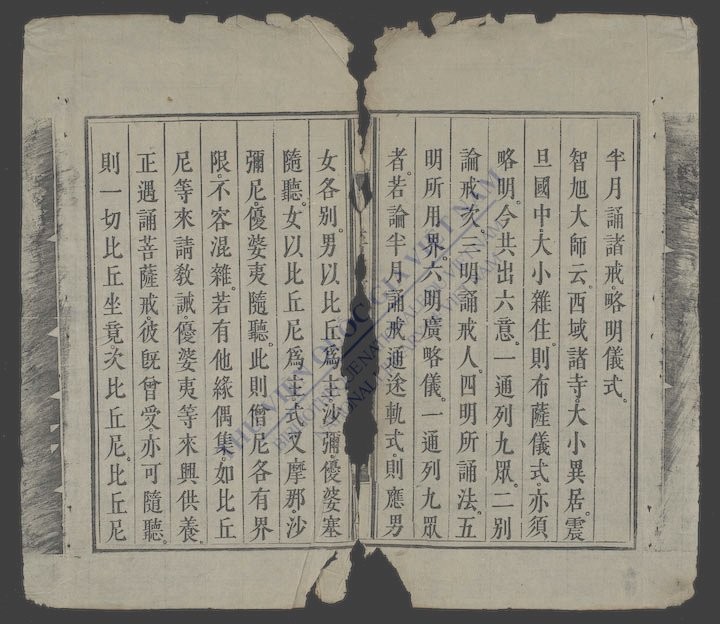 半月誦諸戒。略明儀式。
智旭大師云。西域諸寺。大小異居。震
旦國中。大小雜住。則布薩儀式。亦須
略明。今共出六意。一通列九眾。二別
論戒次。三明誦戒人。四明所誦法。五
明所用界。六明廣略儀。一通列九眾
者。若論半月誦戒通途軌式。則應男
女各別。男以比丘爲主。沙彌。優婆塞
隨聽。女以比丘尼爲主。式叉摩那。沙
彌尼。優婆夷隨聽。此則僧尼各有界
限。不容混雜。若有他緣偶集。如比丘
尼等來請教誡。優婆夷等來興供養。
正遇誦菩薩戒。彼旣曾受。亦可隨聽。
則一切比丘坐竟。次比丘尼。比丘尼
THƯ VIỆN QUỐC GIA VIỆT NAM
NATIONAL LIBRARY OF VIETNAM